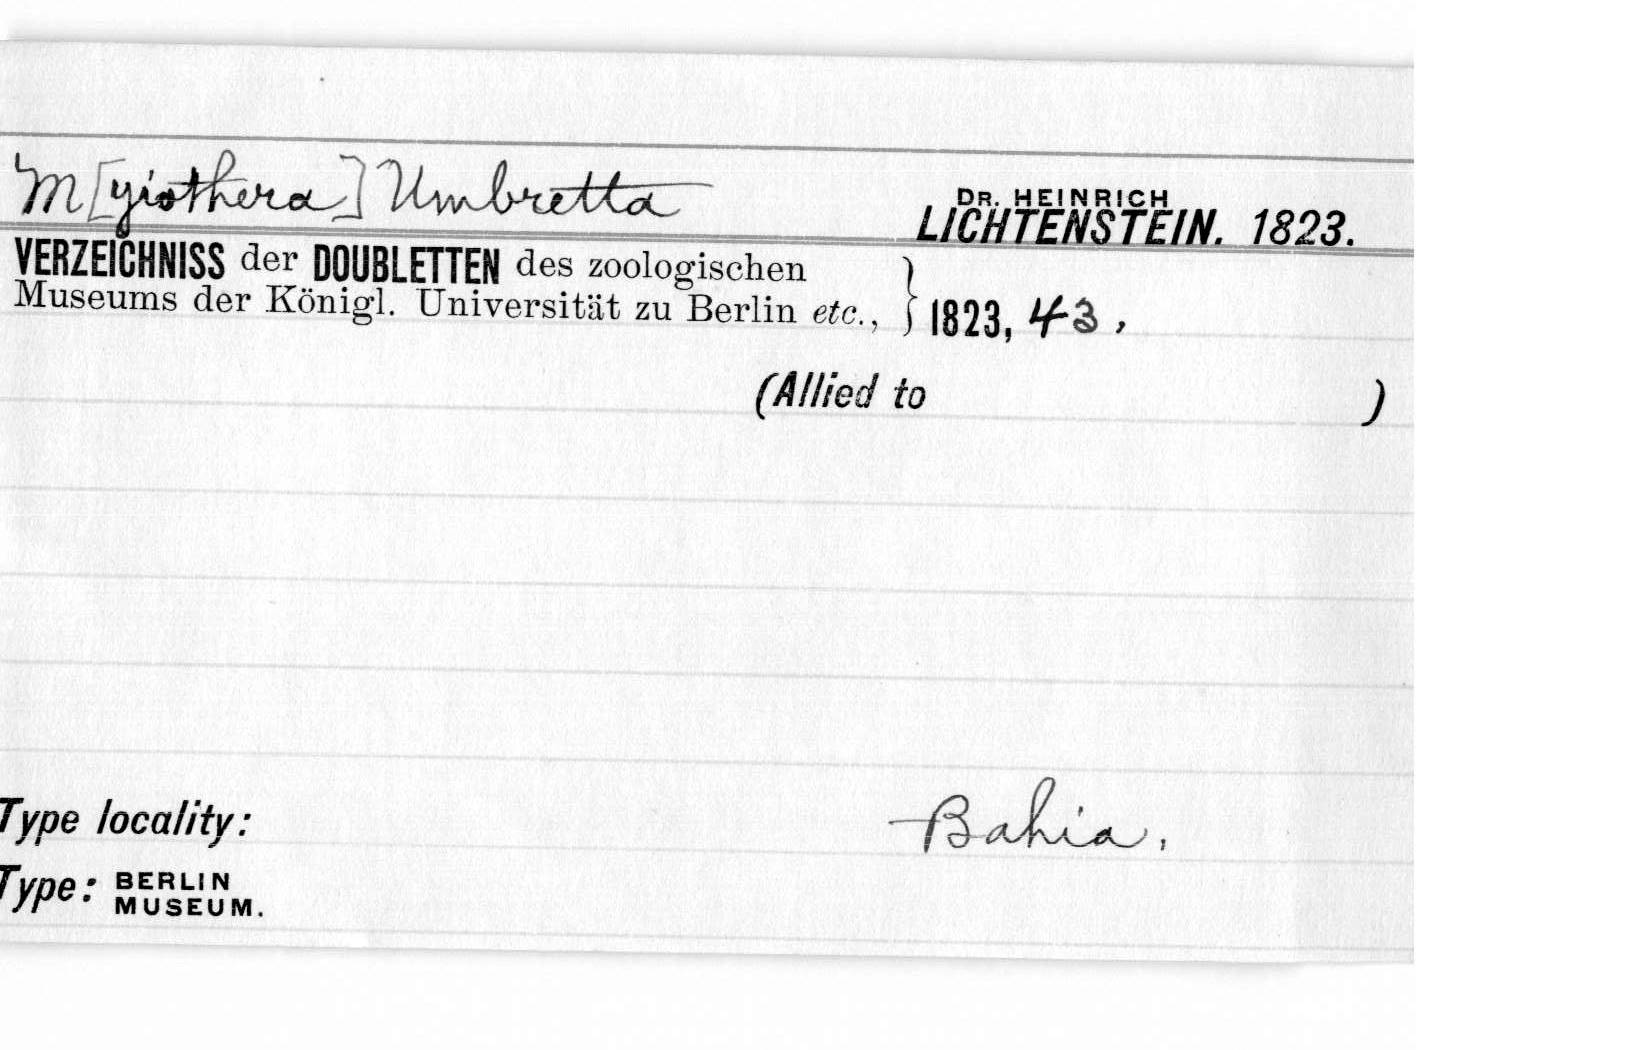 M[yiothera] Umbretta
DR. HEINRICH
LICHTENSTEIN. 1823.
VERZEICHNISS der DOUBLETTEN des zoologischen
Museums der Königl. Universität zu Berlin etc., } 1823, 43,
(Allied to )
Type locality: Bahia.
Type: BERLIN
MUSEUM.